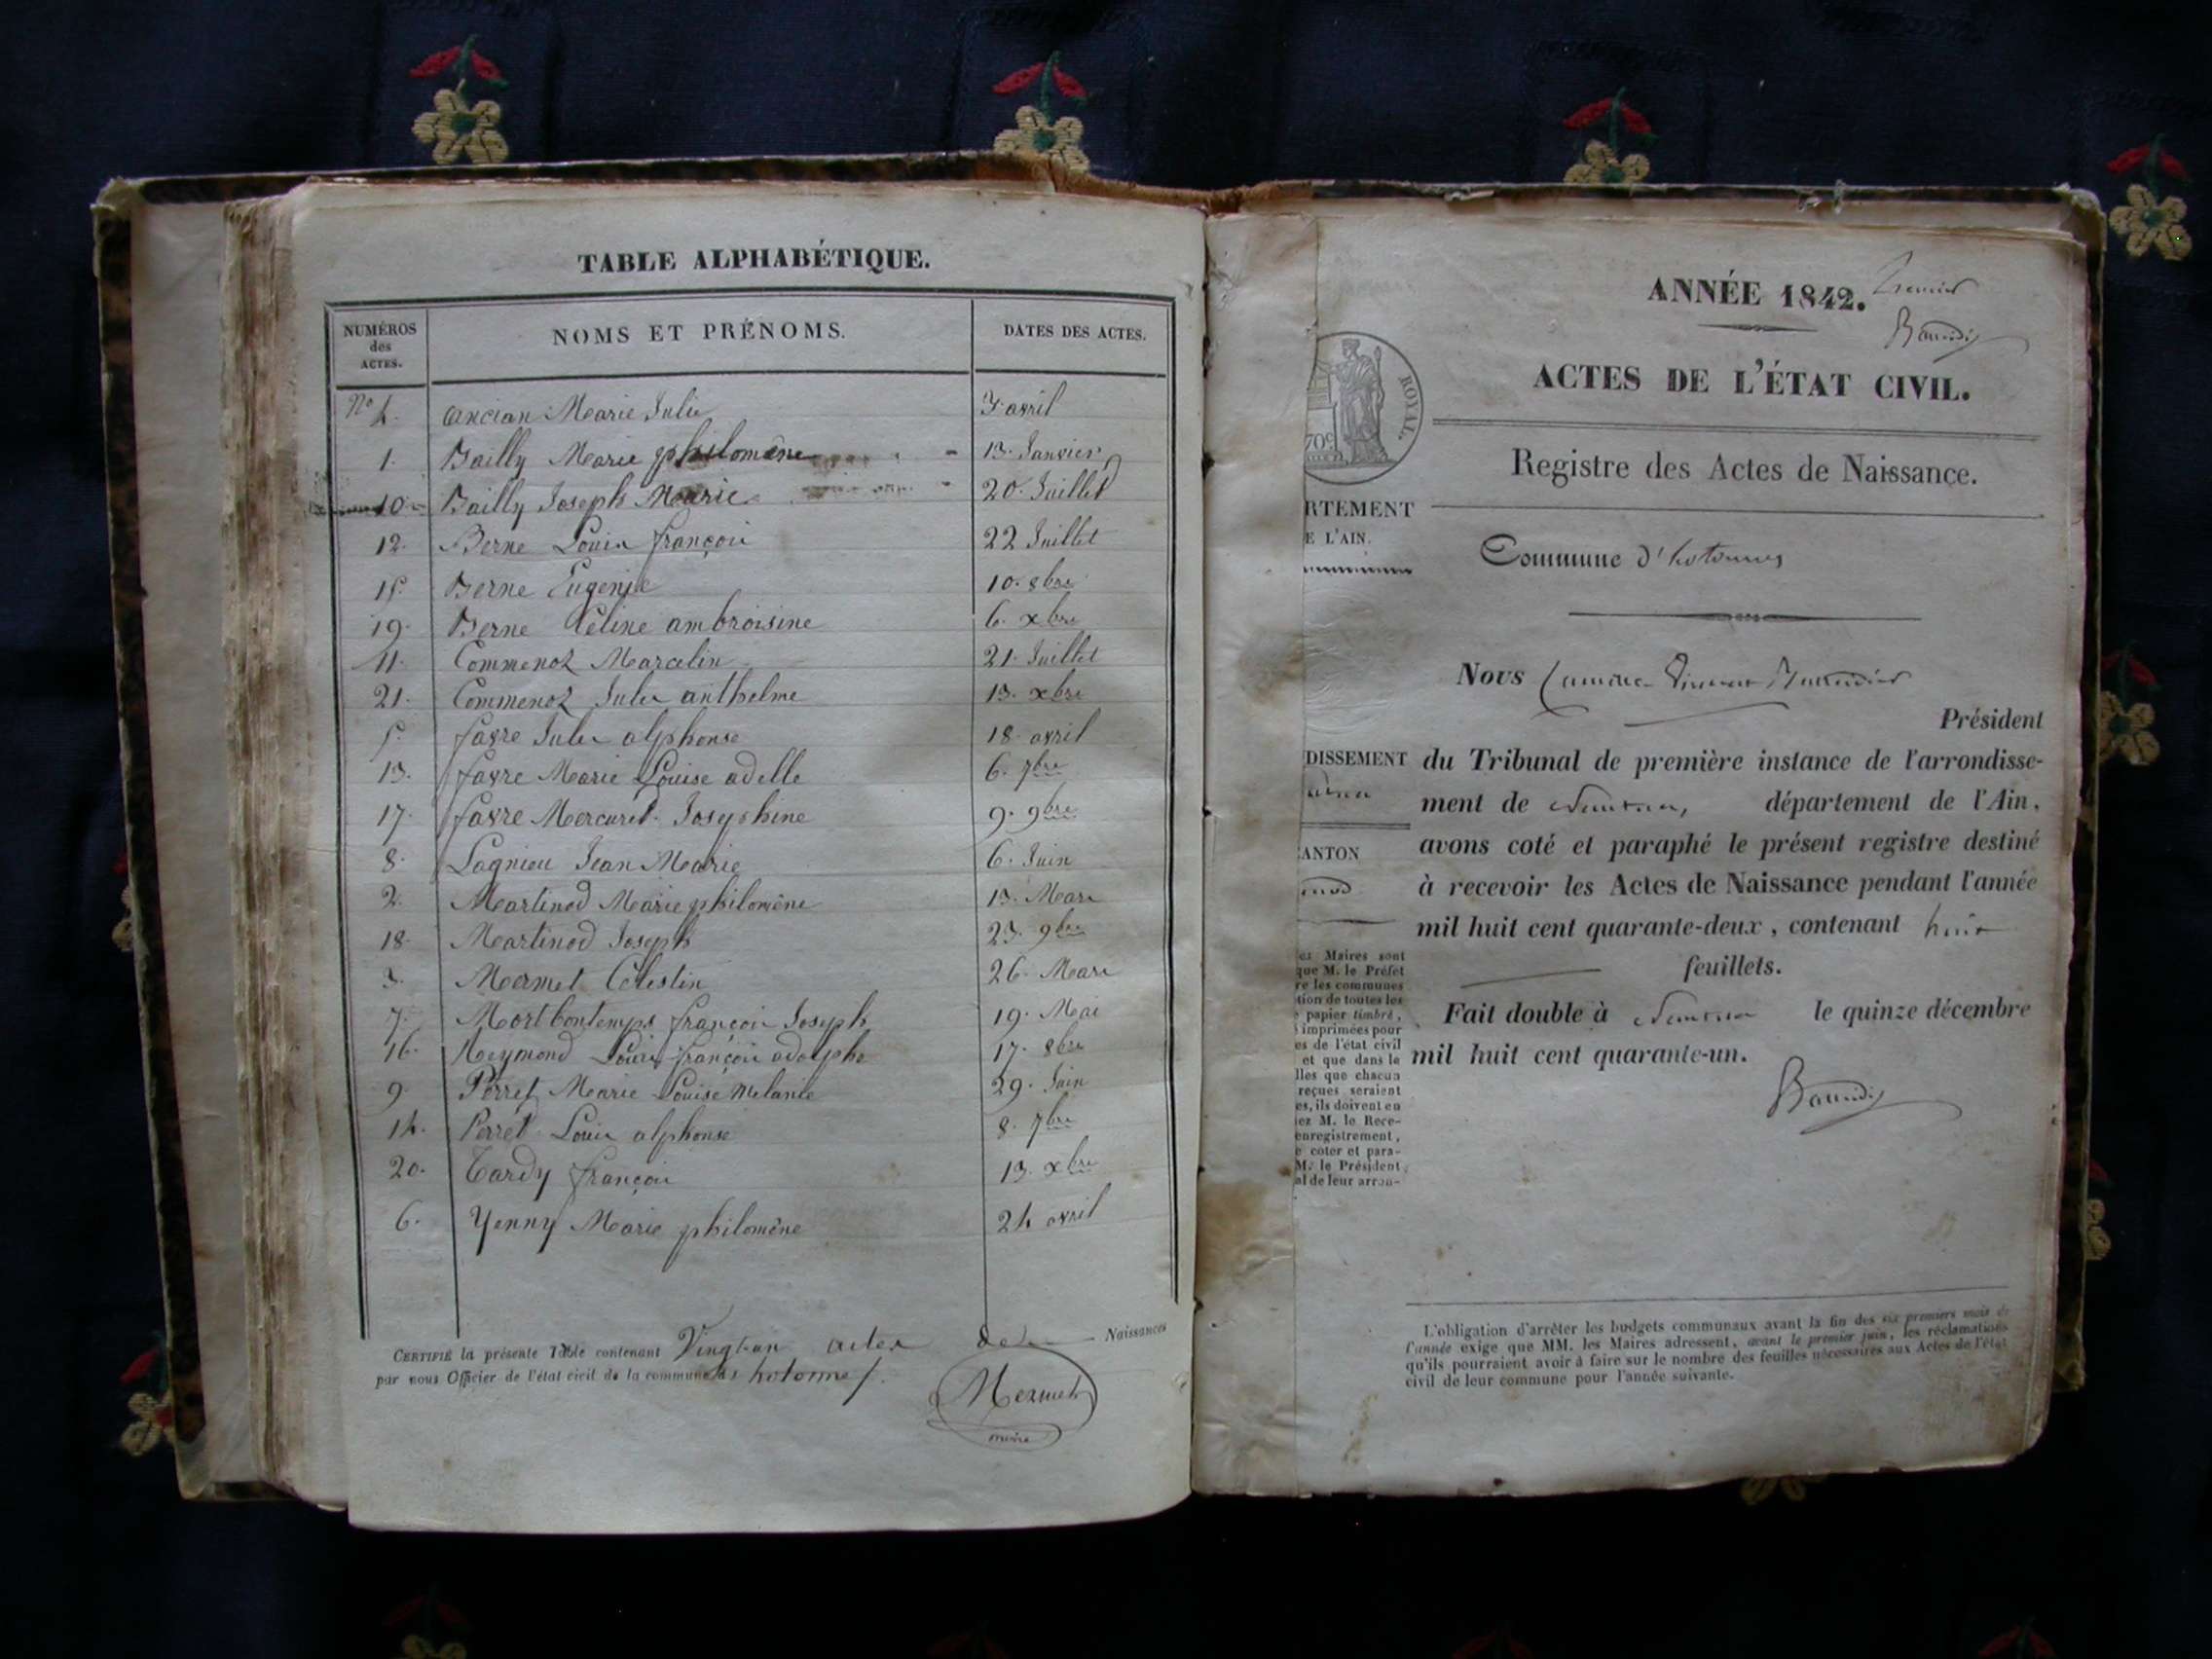 TABLE ALPHABÉTIQUE.
NUMÉROS des ACTES.
NOMS ET PRÉNOMS.
DATES DES ACTES.
No 4. ancian Marie Julie 3 avril
1. Bailly Marie philomène 13. Janvier
10 Bailly Joseph Marie 20. Juillet
12. Berne Louis françois 22 Juillet
15. Berne Eugenie 10. 8bre
19. Berne Céline ambroisine 6. xbre
11. Commenoz Marcelin 21. Juillet
21. Commenoz Jules anthelme 13. xbre
5. favre Jules alphonse 18. avril
13. favre Marie Louise adelle 6. 7bre
17. favre Mercuret Josephine 9. 9bre
8. Lagnieu Jean Marie 6. Juin
2. Martinod Marie philomène 13. Mars
18. Martinod Joseph 23. 9bre
3. Mermet Célestin 26. Mars
7. Montbontemps françois Joseph 19. Mai
16. Reymond Louis françois adolphe 17. 8bre
9. Perret Marie Louise Melanie 29. Juin
14. Perret Louis alphonse 8. 7bre
20. Tardy françois 13. xbre
6. Yenny Marie philomène 24 avril
CERTIFIÉ la présente Table contenant Vingt-un actes de Naissances
par nous Officier de l'état civil de la commune des hotonnes.
Mermet
maire
ANNÉE 1842. Premier
Baudin
ACTES DE L'ÉTAT CIVIL.
Registre des Actes de Naissance.
ROYAL.
70c
RTEMENT
E L'AIN.
Commune d'hotonnes
Nous
Président
DISSEMENT
du Tribunal de première instance de l'arrondisse-
ment de Nantua, département de l'Ain,
ANTON
avons coté et paraphé le présent registre destiné
à recevoir les Actes de Naissance pendant l'année
mil huit cent quarante-deux, contenant huit
feuillets.
Fait double à Nantua le quinze décembre
mil huit cent quarante-un.
es Maires sont
que M. le Préfet
re les communes
tion de toutes les
papier timbré,
imprimées pour
es de l'état civil
et que dans le
lles que chacun
reçues seraient
es, ils doivent en
ez M. le Rece-
enregistrement,
e coter et para-
M. le Président,
al de leur arron-
L'obligation d'arrêter les budgets communaux avant la fin des six premiers mois de
l'année exige que MM. les Maires adressent, avant le premier juin, les réclamations
qu'ils pourraient avoir à faire sur le nombre des feuilles nécessaires aux Actes de l'état
civil de leur commune pour l'année suivante.